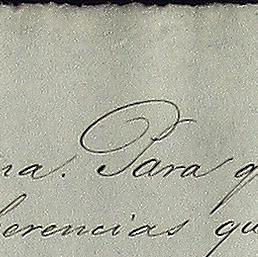 na. Para q
herencias qu